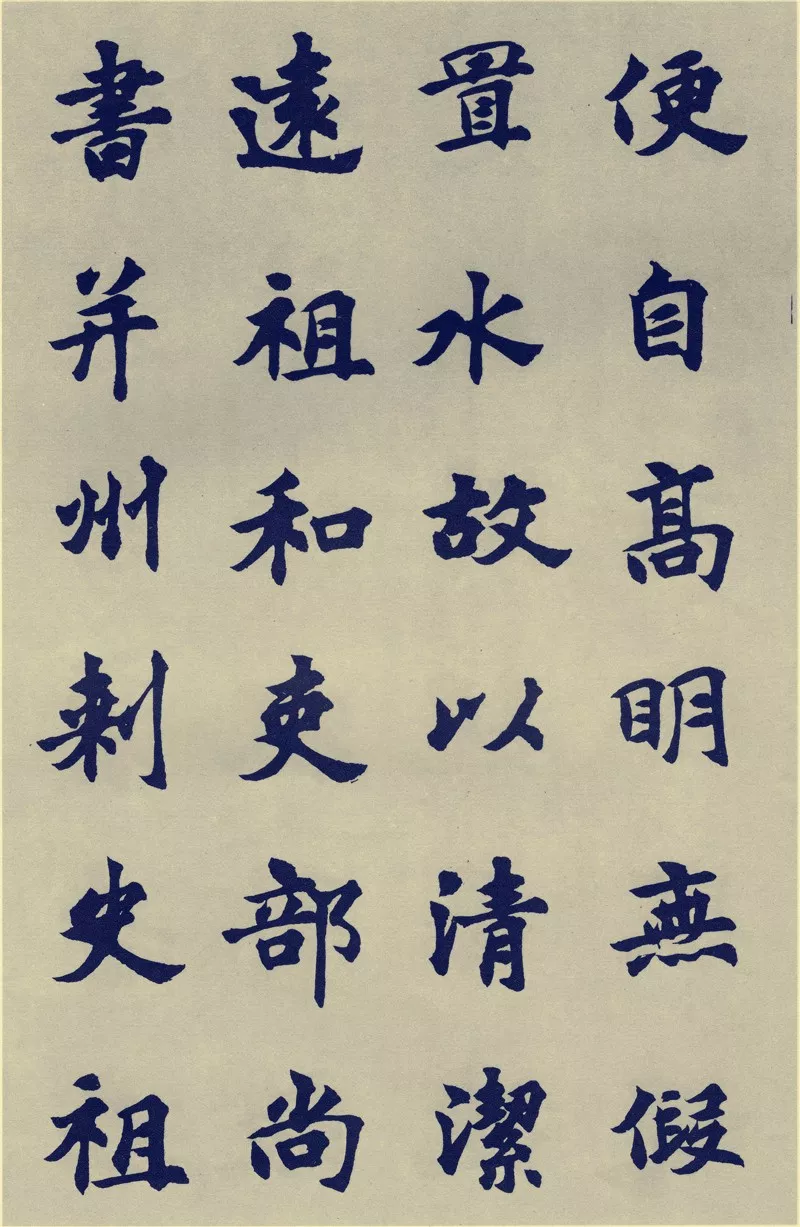 便自高明無假
置水故以清潔
遠祖和吏部尚
書并州刺史祖